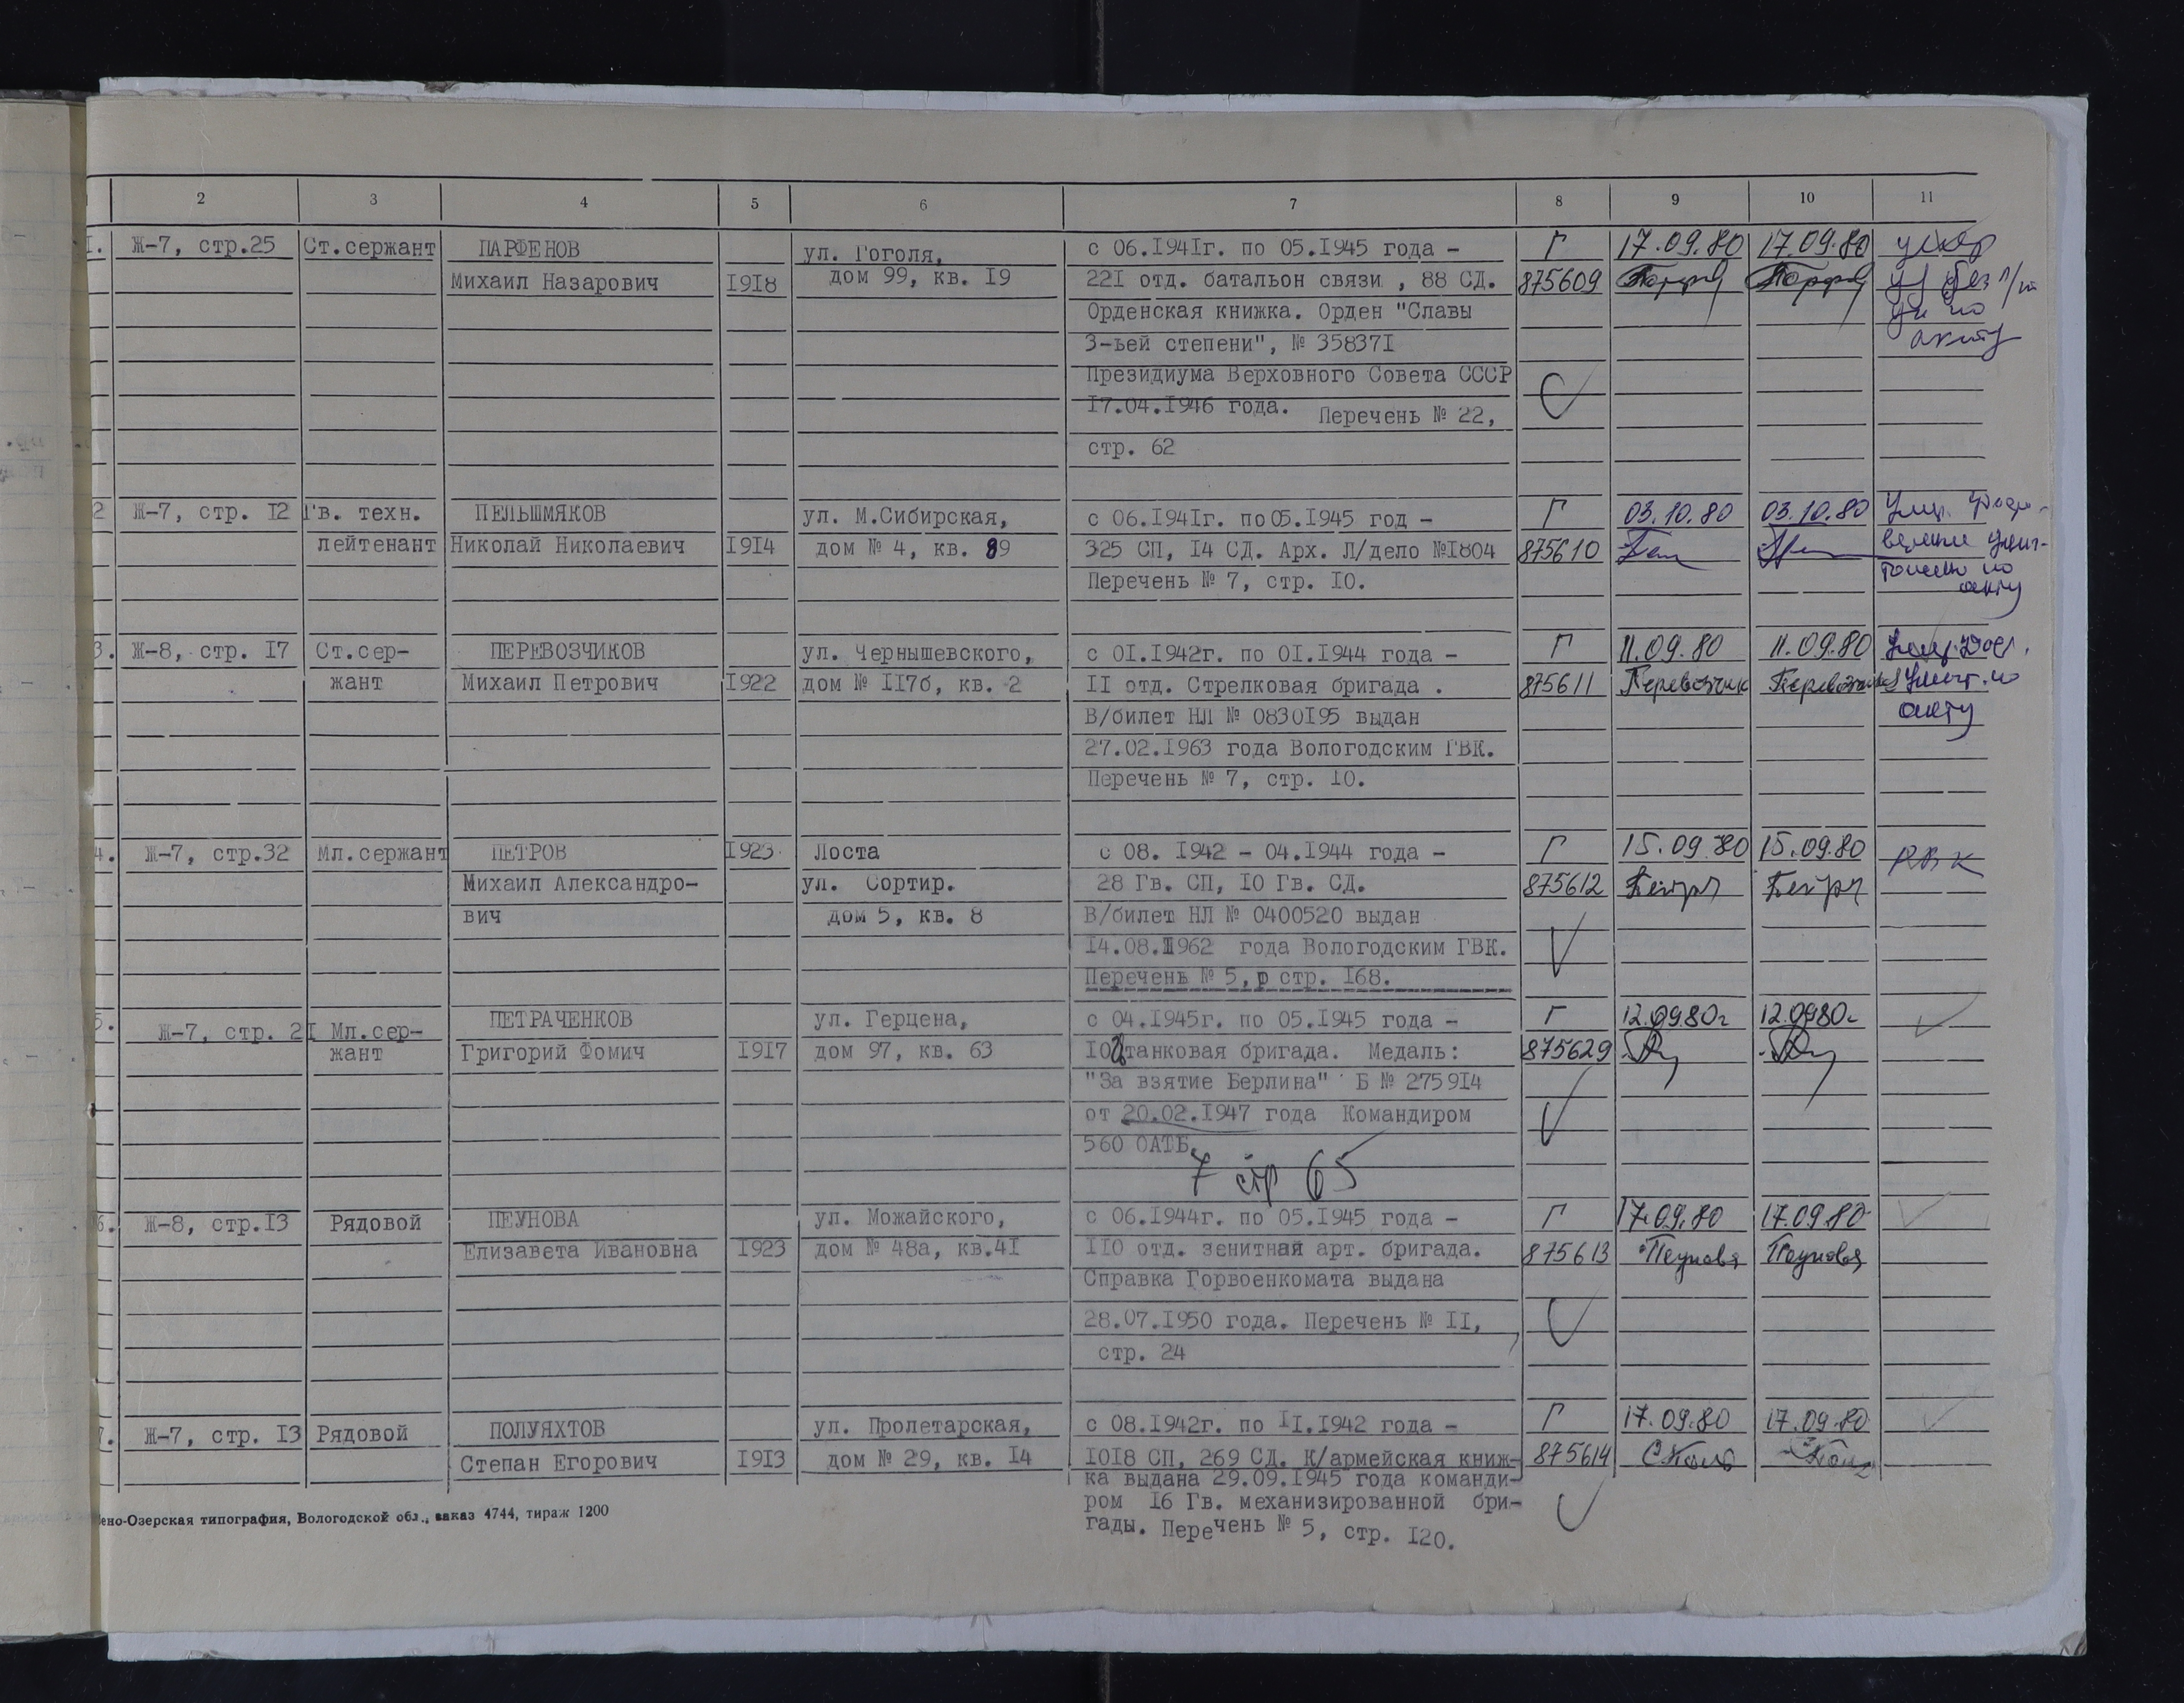 2 3 4 5 6 7 8 9 10 11
1. Ж-7, стр.25 Ст.сержант ПАРФЕНОВ ул. Гоголя, с 06.1941г. по 05.1945 года - Г 17.09.80 17.09.80
Михаил Назарович 1918 дом 99, кв. 19 221 отд. батальон связи , 88 СД. 875609
Орденская книжка. Орден "Славы
3-ьей степени", № 358371 акту
Президиума Верховного Совета СССР
17.04.1946 года. Перечень № 22,
стр. 62
2 Ж-7, стр. 12 Гв. техн. ПЕЛЬШМЯКОВ ул. М.Сибирская, с 06.1941г. по 05.1945 год - Г 03.10.80 03.10.80
лейтенант Николай Николаевич 1914 дом № 4, кв. 89 325 СП, 14 СД. Арх. Л/дело №1804 875610
Перечень № 7, стр. 10. по
акту
3. Ж-8, стр. 17 Ст.сер- ПЕРЕВОЗЧИКОВ ул. Чернышевского, с 01.1942г. по 01.1944 года - Г 11.09.80 11.09.80
жант Михаил Петрович 1922 дом № 117б, кв. 2 11 отд. Стрелковая бригада . 875611 по
В/билет НЛ № 0830195 выдан акту
27.02.1963 года Вологодским ГВК.
Перечень № 7, стр. 10.
4. Ж-7, стр.32 Мл.сержант ПЕТРОВ 1923 Лоста с 08. 1942 - 04.1944 года - Г 15.09.80 15.09.80 РВК
Михаил Александро- ул. Сортир. 28 Гв. СП, 10 Гв. СД. 875612
вич дом 5, кв. 8 В/билет НЛ № 0400520 выдан
14.08.1962 года Вологодским ГВК.
Перечень № 5, стр. 168.
5. Ж-7, стр. 21 Мл.сер- ПЕТРАЧЕНКОВ ул. Герцена, с 04.1945г. по 05.1945 года - Г 12.09.80г 12.09.80г
жант Григорий Фомич 1917 дом 97, кв. 63 танковая бригада. Медаль: 875629
"За взятие Берлина" Б № 275914
от 20.02.1947 года Командиром
560 ОАТБ.
7 стр 65
6. Ж-8, стр.13 Рядовой ПЕУНОВА ул. Можайского, с 06.1944г. по 05.1945 года - Г 17.09.80 17.09.80
Елизавета Ивановна 1923 дом № 48а, кв.41 110 отд. зенитная арт. бригада. 875613 Пеунова Пеунова
Справка Горвоенкомата выдана
28.07.1950 года. Перечень № 11,
стр. 24
7. Ж-7, стр. 13 Рядовой ПОЛУЯХТОВ ул. Пролетарская, с 08.1942г. по 11.1942 года - Г 17.09.80 17.09.80
Степан Егорович 1913 дом № 29, кв. 14 1018 СП, 269 СД. К/армейская книж- 875614
ка выдана 29.09.1945 года команди-
ром 16 Гв. механизированной бри-
гады. Перечень № 5, стр. 120.
ено-Озерская типография, Вологодской обл., заказ 4744, тираж 1200